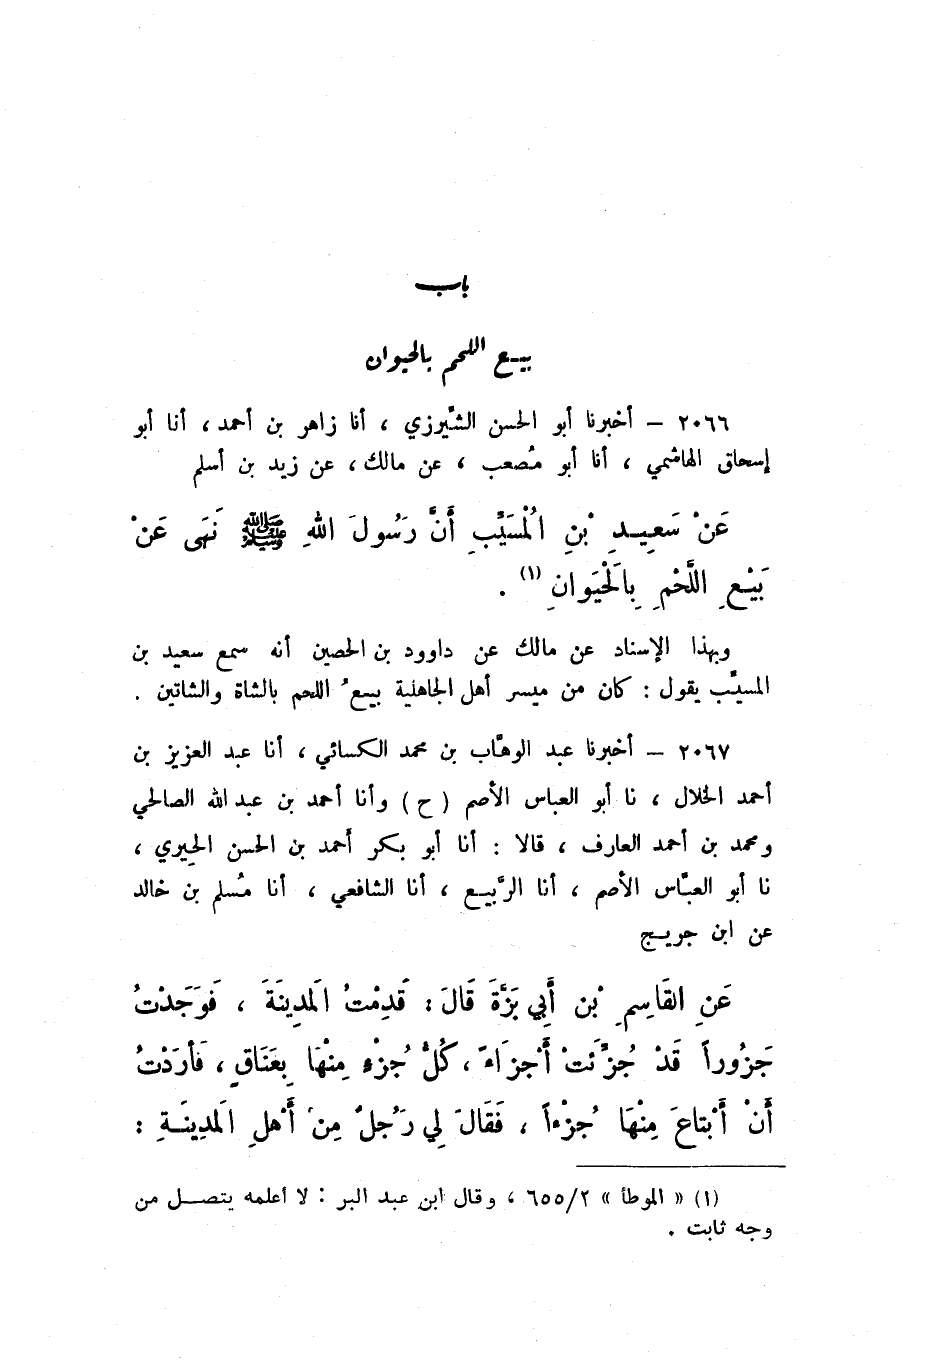 باب
بيع اللحم بالحيوان
٢٠٦٦ – أخبرنا أبو الحسن الشِّيرزي ، أنا زاهر بن أحمد ، أنا أبو
إسحاق الهاشمي ، أنا أبو مُصعب ، عن مالك ، عن زيد بن أسلم
عَنْ سَعِيدِ بْنِ الْمُسَيَّبِ أَنَّ رَسُولَ اللهِ ﷺ نَهَى عَنْ
بَيْعِ اللَّحْمِ بِالْحَيَوَانِ (١) .
وبهذا الإسناد عن مالك عن داوود بن الحصين أنه سمع سعيد بن
المسيَّب يقول : كان من ميسر أهل الجاهلية بيعُ اللحم بالشاة والشاتين .
٢٠٦٧ – أخبرنا عبد الوهَّاب بن محمد الكسائي ، أنا عبد العزيز بن
أحمد الخلال ، نا أبو العباس الأصم ( ح ) وأنا أحمد بن عبد الله الصالحي
ومحمد بن أحمد العارف ، قالا : أنا أبو بكر أحمد بن الحسن الحِيري ،
نا أبو العبَّاس الأصم ، أنا الرَّبيع ، أنا الشافعي ، أنا مُسلم بن خالد
عن ابن جريج
عَنِ القَاسِمِ بْنِ أَبِي بَزَّةَ قَالَ : قَدِمْتُ الَمدِينَةَ ، فَوَجَدْتُ
جَزُوراً قَدْ جُزِّئَتْ أَجْزَاءً ، كُلُّ جُزْءٍ مِنْهَا بِعَنَاقٍ ، فَأَرَدْتُ
أَنْ أَبْتاعَ مِنْهَا جُزْءاً ، فَقَالَ لِي رَجُلٌ مِنَ أَهْلِ الَمدِينَةِ :
(١) « الموطأ » ٦٥٥/٢ ، وقال ابن عبد البر : لا أعلمه يتصل من
وجه ثابت .